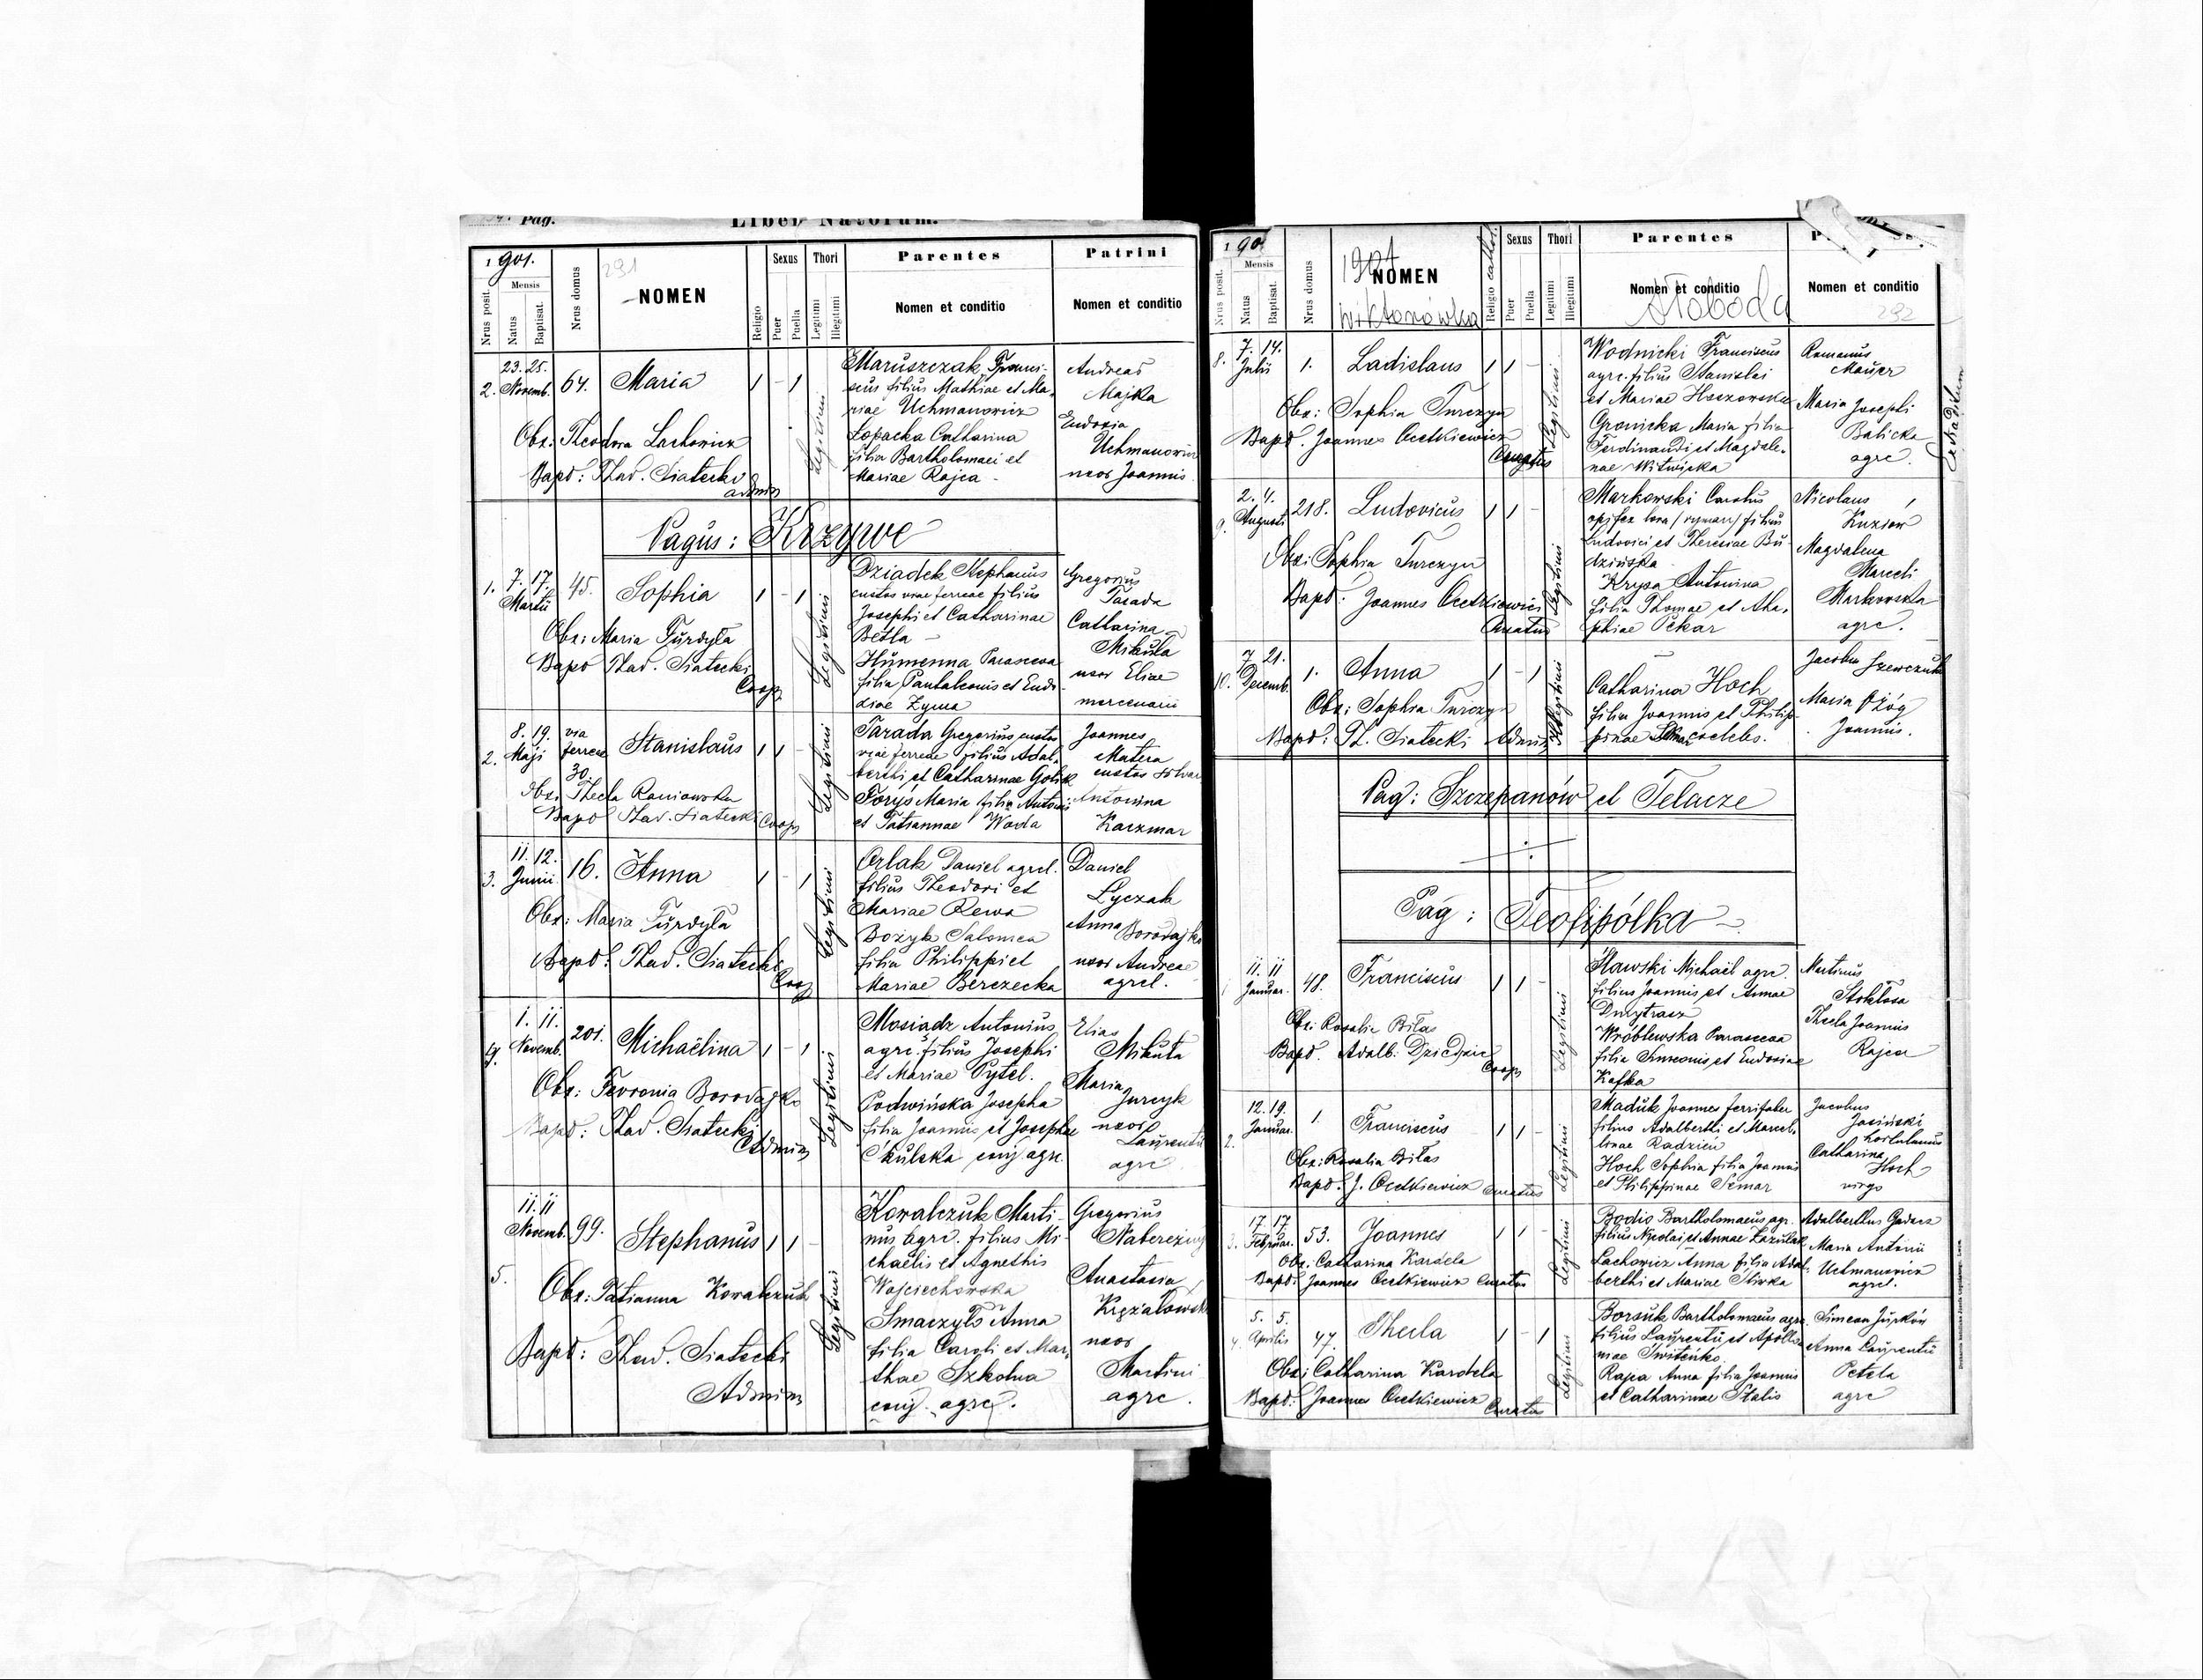 Pag.
Liber Natorum.
1901.
Nrus posit.
Mensis
Natus
Baptisat.
Nrus domus
231
NOMEN
Religio
Sexus
Puer
Puella
Thori
Legitimi
Illegitimi
Parentes
Nomen et conditio
Patrini
Nomen et conditio
2.
23. 25.
Novemb.
64.
Maria
Obx: Theodora Lachowicz
Bapd: Thad. Siatecki
Admin
Legitimi
Maruszczak Francis-
cus filius Mathiae et Ma-
riae Uchmanowicz
Łopacka Catharina
filia Bartholomaei et
Mariae Rajca -
Andreas
Majka
Eudoxia
Uchmanowicz
uxor Joannis
Pagus: Krzywe
1.
7. 17.
Martii
45.
Sophia
Obx: Maria Furdyła
Bapd Thad. Siatecki
Coop
Legitimi
Dziadek Stephanus
custos viae ferreae filius
Josephi et Catharinae
Betla -
Humenna Parasceva
filia Pantaleonis et Eudo-
xiae Zyma
Gregorius
Tarada
Catharina
Mikuła
uxor Eliae
mercenarii
2.
8. 19.
Maji
via
ferreae
30.
Stanislaus
Obx: Thecla Raniowska
Bapd Thad. Siatecki Coop
Legitimi
Tarada Gregorius custos
viae ferreae filius Adal-
berthi et Catharinae Golik
Forys Maria filia Antonii
et Tatiannae Woda
Joannes
Matera
custos silvar
Antonina
Kaczmar
3.
11. 12.
Junii
16.
Anna
Obx: Maria Furdyła
Bapd: Thad. Siatecki
Coop
Legitimi
Orlak Daniel agrcl.
filius Theodori et
Mariae Rewa
Bożyk Salomea
filia Philippi et
Mariae Berezecka
Daniel
Łyczak
Anna
Borodajko
uxor Andreae
agrcl.
4.
1. 11.
Novemb.
201.
Michaëlina
Obx: Fevronia Borodajko
Bapd: Thad. Siatecki
Admin
Legitimi
Mosiadz Antonius
agrc. filius Josephi
et Mariae Pytel.
Podwińska Josepha
filia Joannis et Josephae
Cikulska conj agrc.
Elias
Mikuła
Maria
Jurcyk
uxor
Laurentii
agrc
5.
11. 11
Novemb.
99.
Stephanus
Obx: Tatianna Kowalczuk
Bapd: Thad. Siatecki
Admin
Legitimi
Kowalczuk Marti-
nus agrc. filius Mi-
chaëlis et Agnethis
Wojciechowska
Smaczyło Anna
filia Caroli et Mar-
thae Szkolna
conj. agrc.
Gregorius
Naberezny
Anastasia
uxor
Martini
agrc.
190
Nrus posit.
Mensis
Natus
Baptisat.
Nrus domus
1901
NOMEN
Wiktorówka
Religio cathol.
Sexus
Puer
Puella
Thori
Legitimi
Illegitimi
Parentes
Nomen et conditio
Słoboda
Nomen et conditio
232
8.
7. 14.
Julii
1.
Ladislaus
Obx: Sophia Turczyn
Bapd. Joannes Ocetkiewicz
Curatus
Legitimi
Wodnicki Franciscus
agrc. filius Stanislai
et Mariae Hoszowska
Gronicka Maria filia
Ferdinandi et Magdale-
nae Witwicka
Romanus
Mauer
Maria Josephi
Balicka
agrc.
Extraditum
9.
2. 4.
Augusti
218.
Ludovicus
Obx: Sophia Turczyn
Bapd: Joannes Ocetkiewicz
Curatus
Legitimi
Markowski Carolus
opifex lora / rymarz / filius
Ludovici et Theresiae Bu-
dzińska
Krysa Antonina
filia Thomae et Aha-
phiae Pekar
Nicolaus
Kuziow
Magdalena
Marceli
Markowska
agrc.
10.
7. 21.
Decemb.
1.
Anna
Obx: Sophia Turczyn
Bapd: Th. Siatecki Admin
Illegitimi
Catharina Hoch
filia Joannis et Philip-
pinae Semar coelebs.
Jacobus Szewczuk
Maria Ożóg
Joannis.
Pag: Szczepanów et Telacze
Pag: Teofipólka
11. 11
Januar.
48.
Franciscus
Obx: Rosalia Biłas
Bapd. Adalb. Dziedzic
Coop
Legitimi
Sławski Michaël agrc.
filius Joannis et Annae
Dmytrasz
Wróblewska Parasceva
filia Simeonis et Eudoxiae
Kafka
Martinus
Stokłosa
Thecla Joannis
Rajca
2.
12. 19.
Januar.
1.
Franciscus
Obx: Rosalia Biłas
Bapd. J. Ocetkiewicz Curatus
Legitimi
Maduk Joannes ferrifaber
filius Adalberthi et Marcel-
linae Radzień
Hoch Sophia filia Joannis
et Philippinae Semar
Jacobus
Jasiński
hortulanus
Catharina
Hoch
virgo
3.
17. 17.
Februar.
53.
Joannes
Obx: Catharina Kardela
Bapd: Joannes Ocetkiewicz Curatus
Legitimi
Bodio Bartholomaeus agr.
filius Nicolai et Annae Zazulak
Lachowicz Anna filia Adal-
berthi et Mariae Śliwka
Adalberthus Gadacz
Maria Antonii
Uchmanowicz
agrcl.
4.
5. 5.
Aprilis
47.
Thecla
Obx: Catharina Kardela
Bapd: Joannes Ocetkiewicz
Curatus
Legitimi
Borsuk Bartholomaeus agrc
filius Laurentii et Apollo-
niae Switeńko
Rajca Anna filia Joannis
et Catharinae Stalis
Simeon Jurków
Anna Laurentii
Petela
agrc